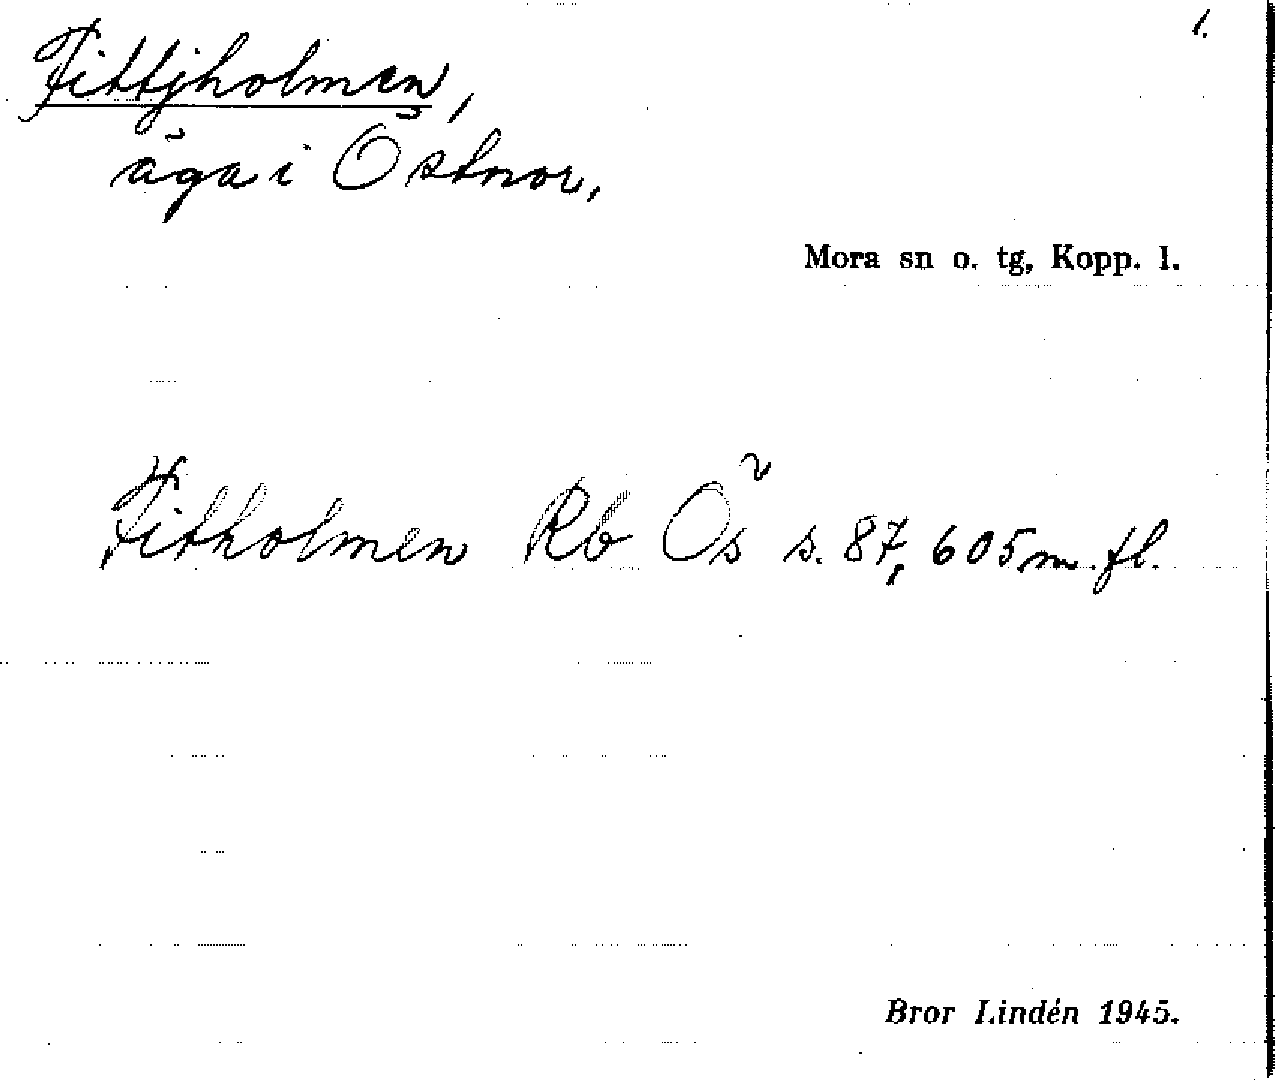 1.
Fittjholmen,
äga i Östnor,
Mora sn o. tg, Kopp. l.
Fitholmen Rb Ös s. 87, 605 m. fl.
Bror Lindén 1945.